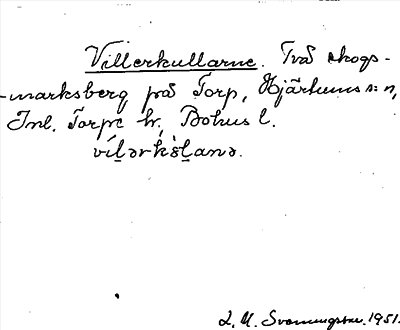 Villerkullarne. Två skogs-
-marksberg på Torp, Hjärtums s:n,
Inl. Torpe hr, Bohus l.
vílərkʹs̀l̲anə.
L. M. Svanungsson. 1951.